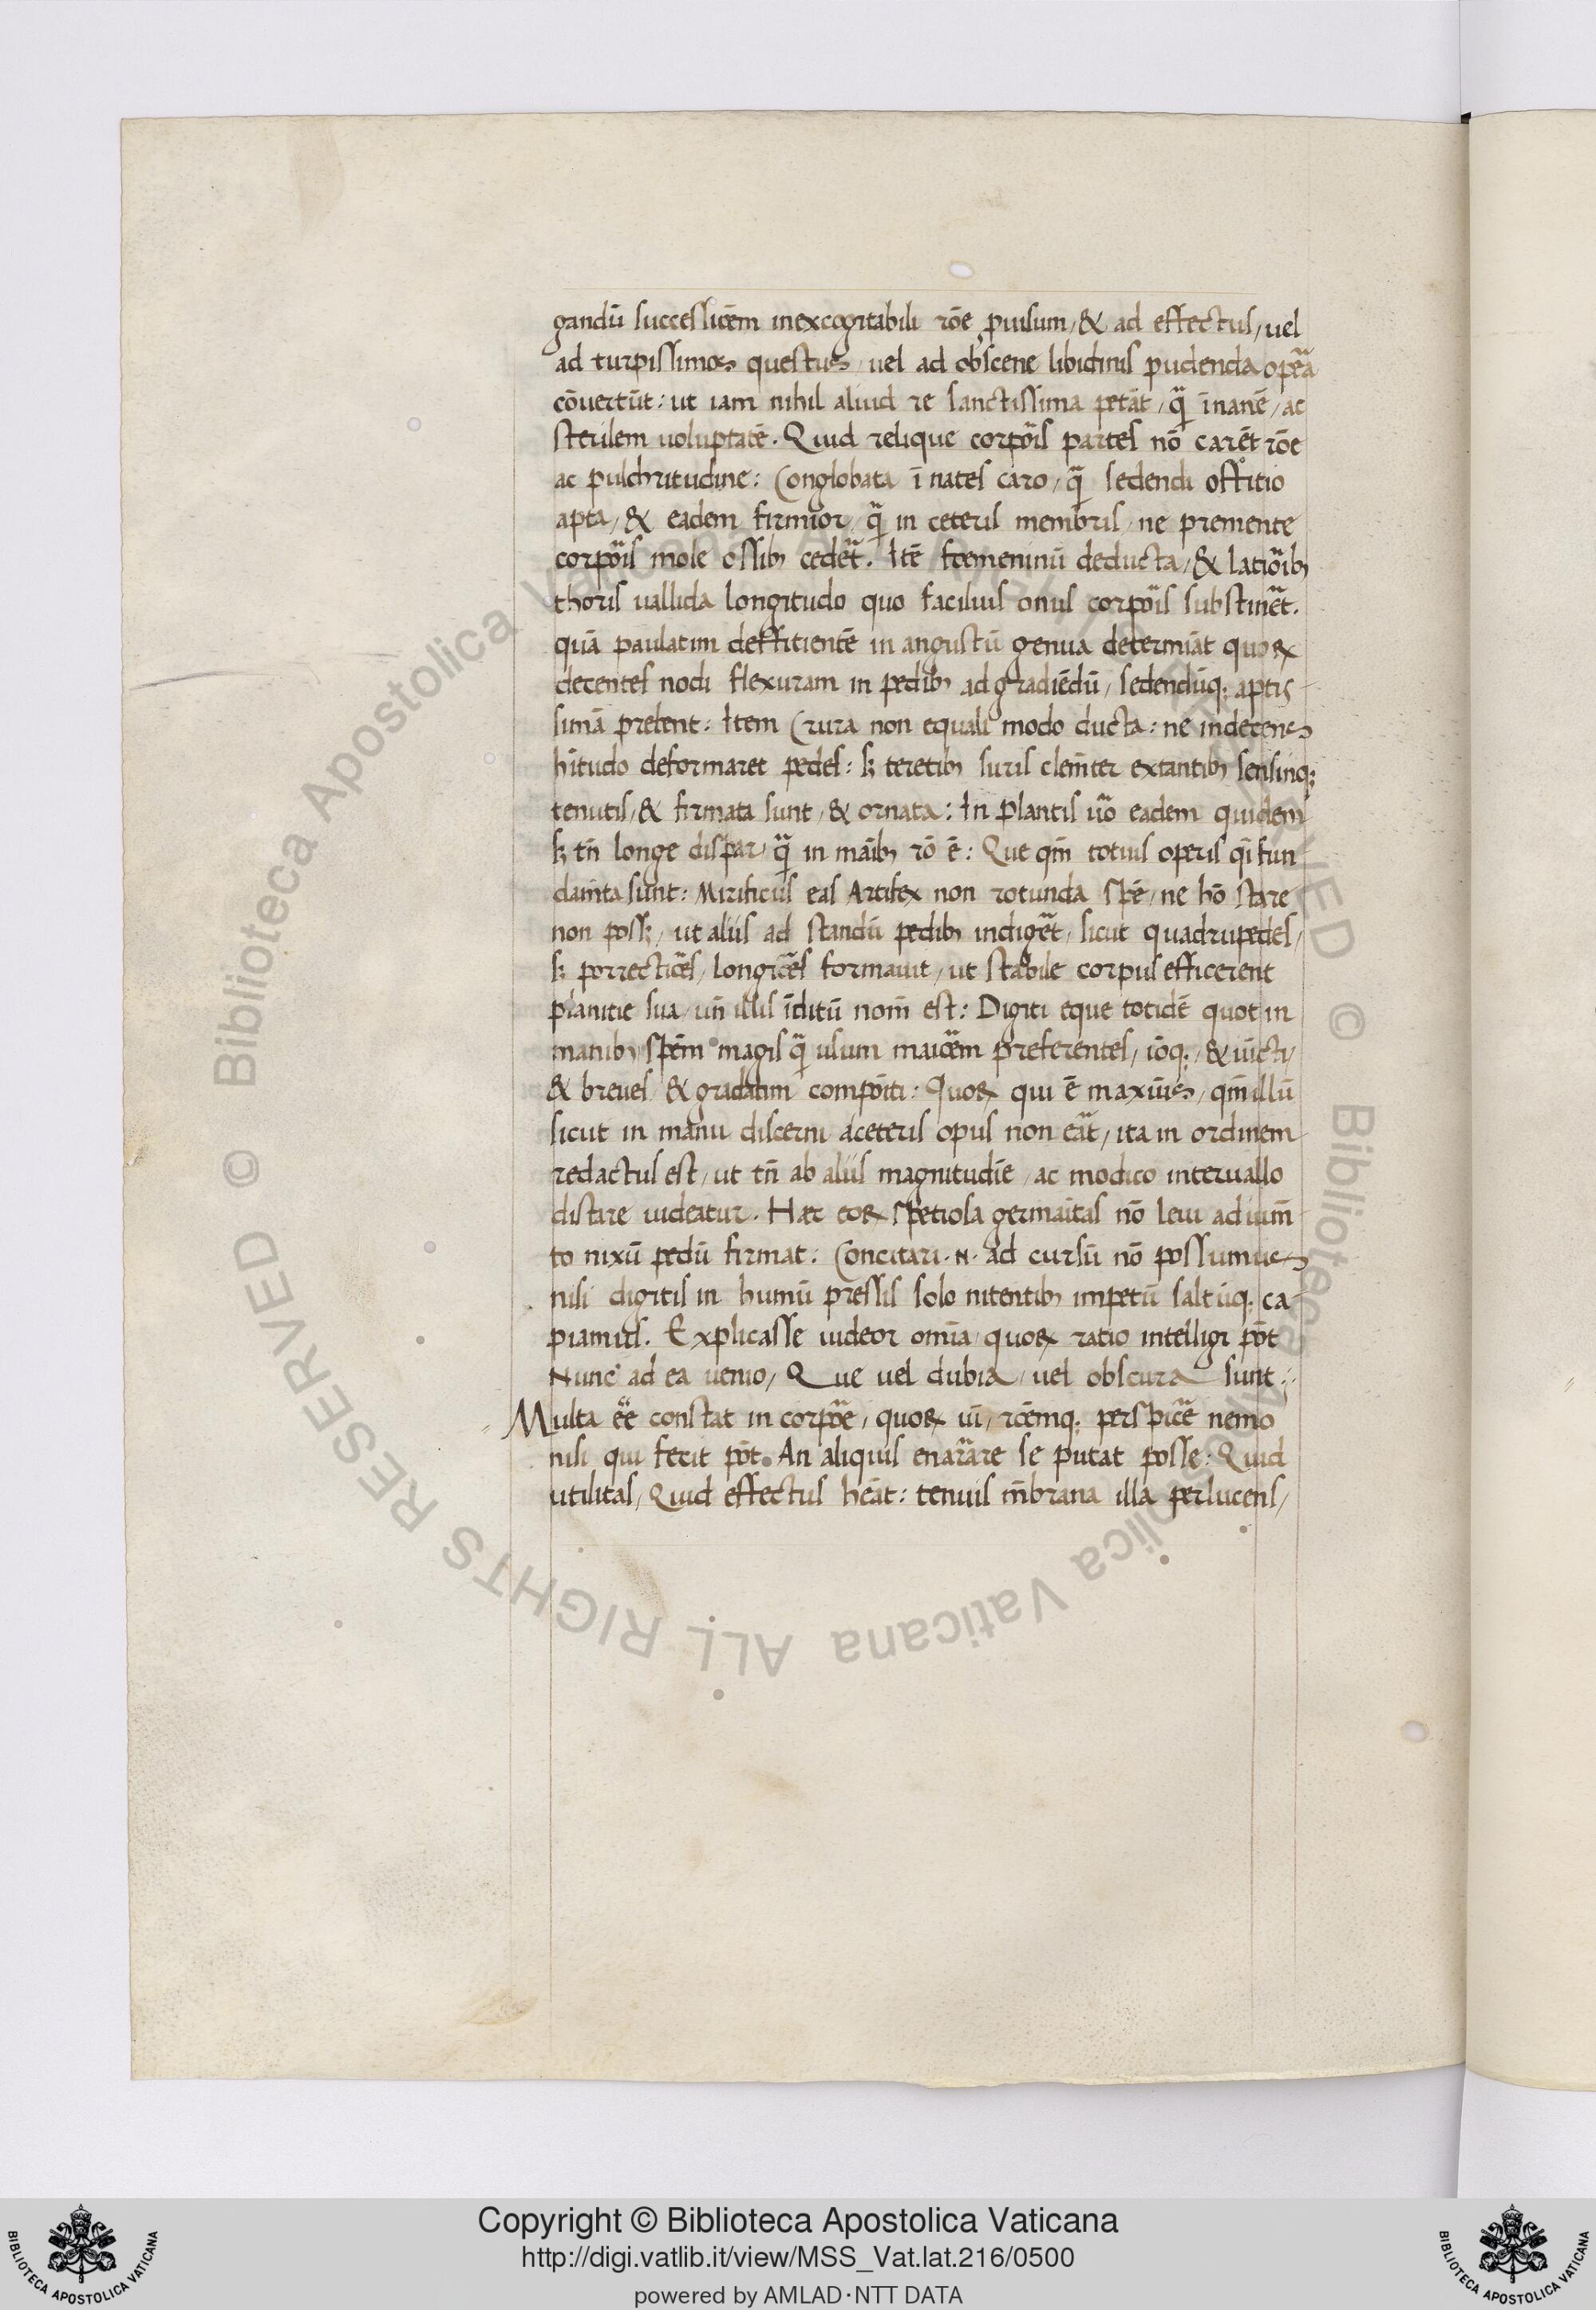 gandū successiōem inexcogitabili rōe puisum / & ad effectus / uel
ad turpissimos questus / uel ad obscene libidinis pudenda opera
cōuertūt: ut iam nihil aliud re sanctissima petāt / q̄ inanē / ac
sterilem uoluptatē. Quid relique corpōis partes nō carēt rōe
ac pulchritudine: Conglobata ī nates caro / q̄ sedendi offitio
apta / & eadem firmior / q̄ in ceteris membris / ne premente
corpōis mole ossib; cedēt. Itē foemeninū deducta / & latiōib;
thoris uallida longitudo quo facilius onus corpōis substinēt.
quā paulatim deffitientē in angustū genua determīāt quoꝝ
decentes nodi flexuram in pedib; ad gradiēdū / sedendūq; aptis
simā prebent: Item Crura non equali modo ducta: ne indecens
hītudo deformaret pedes: sꝫ teretib; suris clemēter extantib; sensinq;
tenutis / & firmata sunt / & ornata: In Plantis ūo eadem quidem
sꝫ tn̄ longe dispar / q̄ in manib; rō ē: Que qm̄ totius operis q̄i fun
damīta sunt: Mirificus eas Artifex non rotunda spē / ne hō stare
non possꝫ / ut aliis ad standū pedib; indigēt / sicut quadrupedes /
sꝫ porrectiōes / longiōes formauit / ut stabile corpus efficerent
planitie sua / un̄ illis īditū nom̄ est: Digiti eque totidē quot in
manib; spēm magis q̄ usum maiōem preferentes / iōq; / & iūcti /
& breues / & gradatim compōiti: Quoꝝ qui ē maximus / qm̄ illū
sicut in manu discerni a ceteris opus non eāt / ita in ordinem
redactus est / ut tn̄ ab aliis magnitudīe / ac modico interuallo
distare uideatur. Hæc eoꝝ spetiosa germāitas nō leui adium̄
to nixū pedū firmat: Concitari .N. ad cursū nō possumus
nisi digitis in humū pressis solo nitentib; impetū saltūq; ca
piamus. Explicasse uideor omīa / quoꝝ ratio intelligi pōt
Nunc ad ea uenio / Que uel dubia / uel obscura sunt:
Multa ēe constat in corpōe / quoꝝ uī / rōemq; perspicēe nemo
nisi qui fecit pōt. An aliquis enarare se putat posse: Quid
utilitas / Quid effectus hēat: tenuis mēbrana illa perlucens /
Copyright © Biblioteca Apostolica Vaticana
http://digi.vatlib.it/view/MSS_Vat.lat.216/0500
powered by AMLAD·NTT DATA